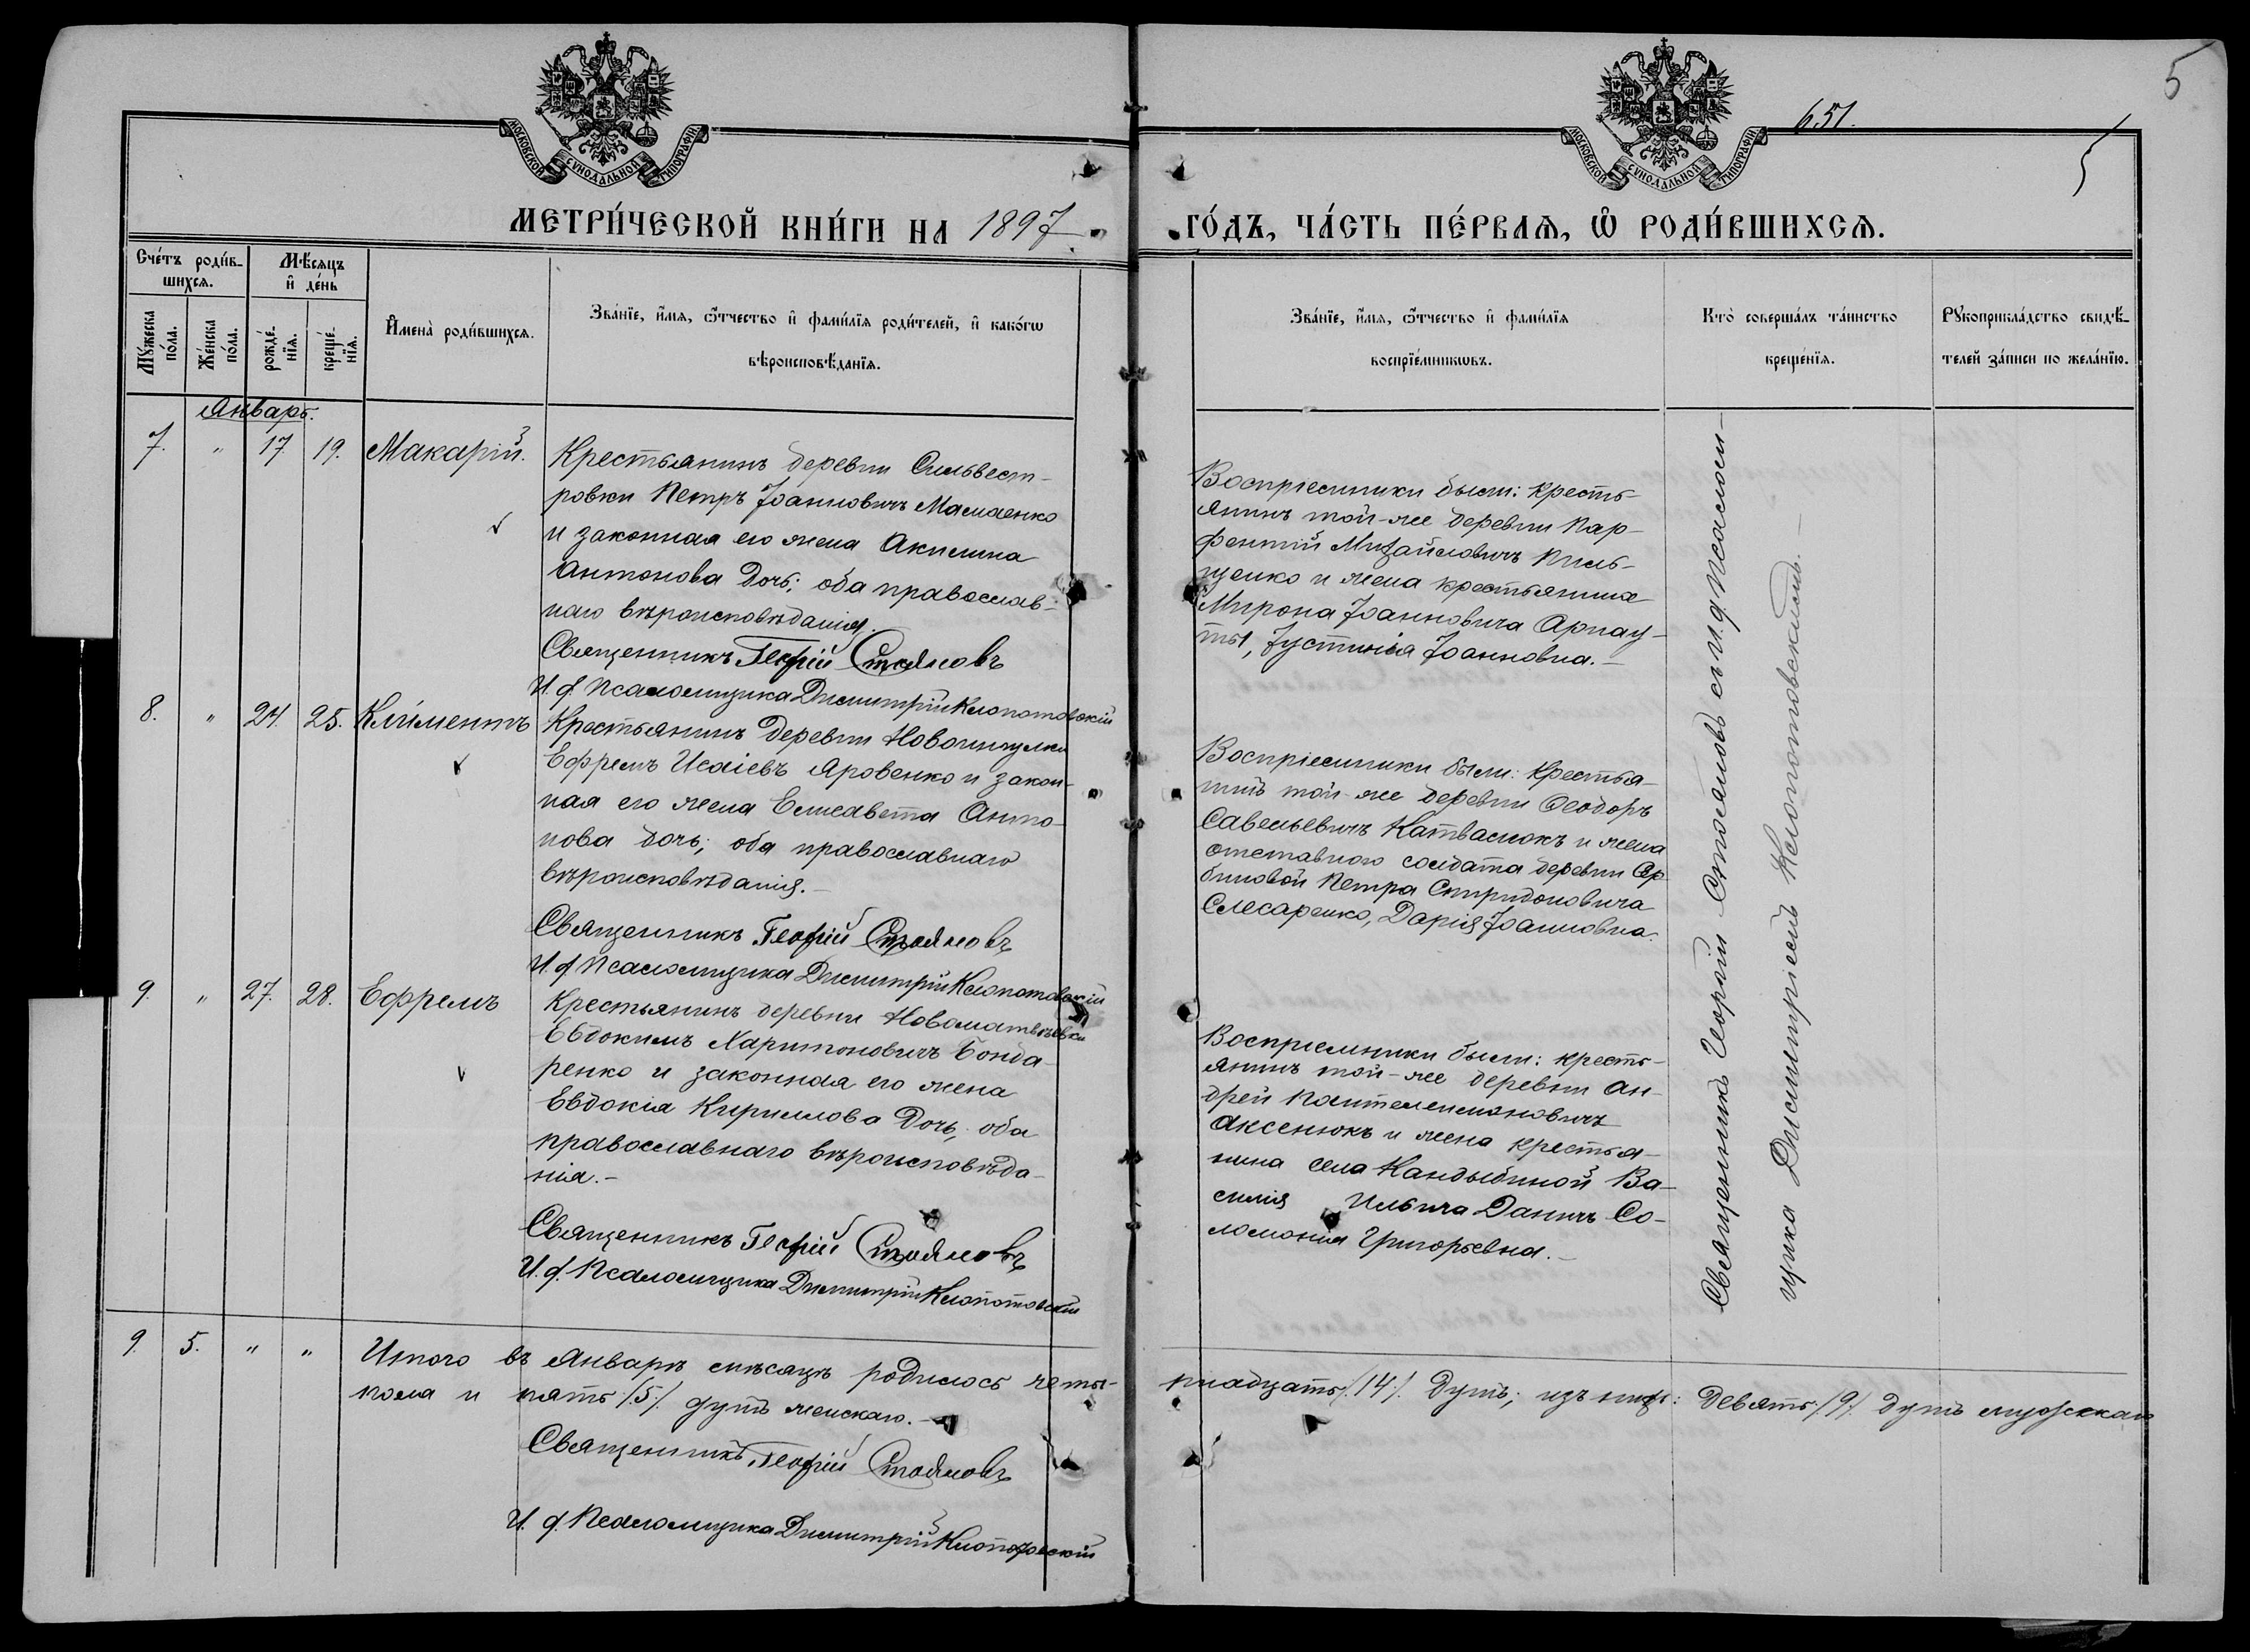 5
651.
МОСКОВСКОЙ СѴНОДАЛЬНОЙ ТИПОГРАФІИ
МОСКОВСКОЙ СѴНОДАЛЬНОЙ ТИПОГРАФІИ
МЕТРИ́ЧЕСКОЙ КНИ́ГИ НА 1897
ГО́ДЪ, ЧА́СТЬ ПЕ́РВАѦ, Ѡ҆ РОДИ́ВШИХСѦ.
Сче́тъ роди́в-
шихсѧ.
Мꙋ́жеска по́ла.
Же́нска по́ла.
Мѣ́сѧцъ
и҆ де́нь
рожде́-
нїѧ.
креще́-
нїѧ.
И҆мена̀ роди́вшихсѧ.
Зва́нїе, и҆́мѧ, ѻ҆́тчество и҆ фами́лїѧ роди́телей, и҆ како́гѡ
вѣроисповѣ́данїѧ.
Зва́нїе, и҆́мѧ, ѻ҆́тчество и҆ фами́лїѧ
воспрїе́мникѡвъ.
Кто̀ соверша́лъ та́инство
креще́нїѧ.
Рꙋкоприкла́дство свидѣ́-
телей за́писи по жела́нїю.
Январь.
7. " 17 19. Макарій.
Крестьянинъ деревни Сильвест-
ровки Петръ Іоанновичъ Мамаенко
и законная его жена Акилина
Антонова дочь; оба православ-
наго вѣроисповѣданія.
Священникъ Георгій Стояновъ
И. д. Псаломщика Димитрій Клопотовскій
Воспріемники были: кресть-
янинъ той-же деревни Пар-
фентій Михайловичъ Пиль-
щенко и жена крестьянина
Мирона Іоанновича Арнау-
ты, Іустинія Іоанновна.-
8. " 24. 25. Климентъ
Крестьянинъ деревни
Ефремъ Исаіевъ Яровенко и закон-
ная его жена Елисавета Анто-
нова дочь; оба православнаго
вѣроисповѣданія.-
Священникъ Георгій Стояновъ
И. д. Псаломщика Димитрій Клопотовскій
Воспріемники были: Крестья-
нинъ той-же деревни Ѳеодоръ
Савельевичъ и жена
отставного солдата деревни Ар-
биновой Петра Спиридоновича
Слесаренко, Дарія Іоанновна.
9. " 27. 28. Ефремъ
Крестьянинъ деревни Новоматвѣевки
Евдокимъ Харитоновичъ Бонда-
ренко и законная его жена
Евдокія Кириллова дочь; оба
православнаго вѣроисповѣда-
нія.-
Священникъ Георгій Стояновъ
И. д. Псаломщика Димитрій Клопотовскій
Воспріемники были: кресть-
янинъ той-же деревни Ан-
дрей Пантелеимоновичъ
Аксенюкъ и жена крестья-
нина села Кандыбиной Ва-
силія Ильича Данич Со-
ломонія Григорьевна.-
Священникъ Георгій Стояновъ съ и. д. Псалом-
щика Димитріемъ Клопотовскимъ.-
9. 5. " " Итого въ Январѣ мѣсяцѣ родилось четы-
рнадцать /14/ душъ; изъ нихъ: девять /9/ душъ мужескаго
пола и пять /5/ душъ женскаго.-
Священникъ Георгій Стояновъ
И. д. Псаломщика Димитрій Клопотовскій